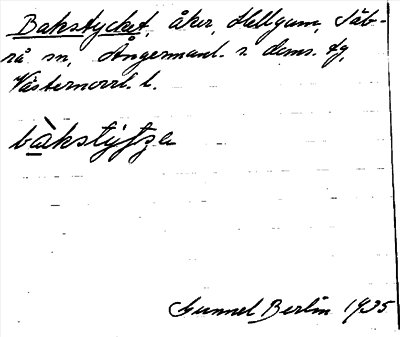 Bakstycket, åker, Hellgum, Säb-
rå sn, Ångermanl. s. doms. tg,
Västernorrl. l.
bàkstýtza
Gunnel Berlin 1935